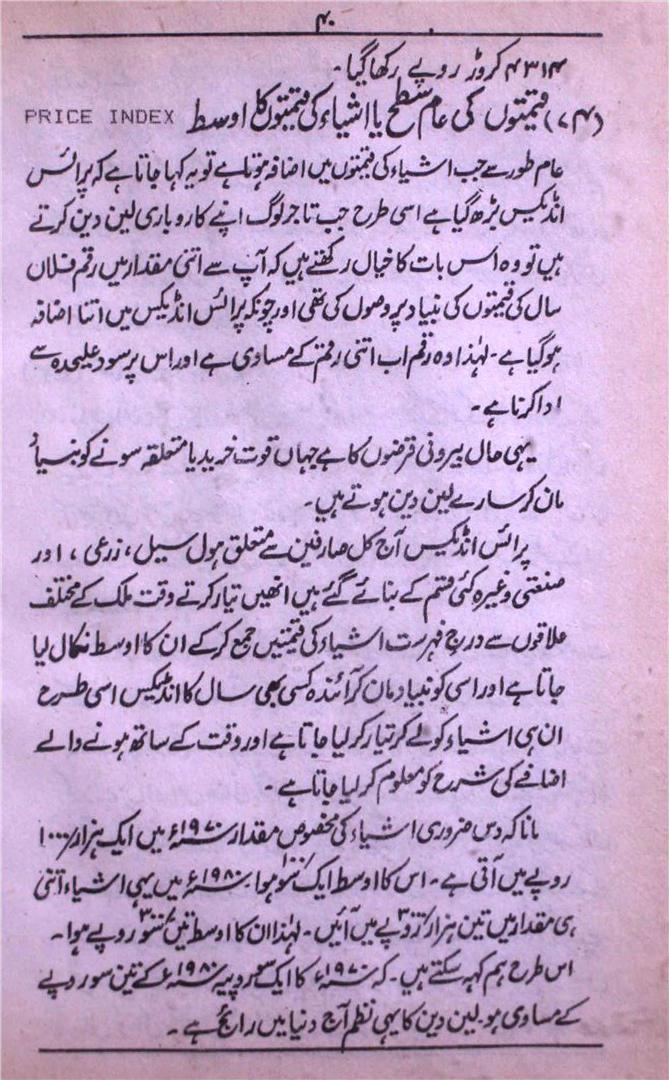 ۴۰
۴۳۱۴ کروڑ روپے رکھا گیا۔
(۷۴) قیمتوں کی عام سطح یا اشیاء کی قیمتوں کا اوسط PRICE INDEX
عام طور سے جب اشیاء کی قیمتوں میں اضافہ ہوتا ہے تو یہ کہا جاتا ہے کہ پرائس
انڈیکس بڑھ گیا ہے اسی طرح جب تاجر لوگ اپنے کاروباری لین دین کرتے
ہیں تو وہ اس بات کا خیال رکھتے ہیں کہ آپ سے اتنی مقدار میں رقم فلاں
سال کی قیمتوں کی بنیاد پر وصول کی تھی اور چونکہ پرائس انڈیکس میں اتنا اضافہ
ہوگیا ہے۔ لہٰذا وہ رقم اب اتنی رقم کے مساوی ہے اور اس پر سود علیحدہ سے
ادا کرنا ہے۔
یہی حال بیرونی قرضوں کا ہے جہاں قوت خرید یا متعلقہ سونے کو بنیاد
مان کر سارے لین دین ہوتے ہیں۔
پرائس انڈیکس آج کل صارفین سے متعلق ہول سیل، زرعی، اور
صنعتی وغیرہ کئی قسم کے بنائے گئے ہیں انھیں تیار کرتے وقت ملک کے مختلف
علاقوں سے درج فہرست اشیاء کی قیمتیں جمع کرکے ان کا اوسط نکال لیا
جاتا ہے اور اسی کو بنیاد مان کر آئندہ کسی بھی سال کا انڈیکس اسی طرح
ان ہی اشیاء کو لے کر تیار کر لیا جاتا ہے اور وقت کے ساتھ ہونے والے
اضافے کی شرح کو معلوم کر لیا جاتا ہے۔
مانا کہ دس ضروری اشیاء کی مخصوص مقدار ۱۹۷۰ء میں ایک ہزار/۱۰۰۰
روپے میں آتی ہے۔ اس کا اوسط ایک سو/۱۰۰ ہوا۔ ۱۹۸۰ء میں یہی اشیاء اتنی
ہی مقدار میں تین ہزار/۳۰۰۰ روپے میں آئیں۔ لہٰذا ان کا اوسط تین سو/۳۰۰ روپے ہوا۔
اس طرح ہم کہہ سکتے ہیں۔ کہ ۱۹۷۰ء کا ایک سو روپیہ ۱۹۸۰ء کے تین سو روپے
کے مساوی ہو۔ لین دین کا یہی نظم آج دنیا میں رائج ہے۔